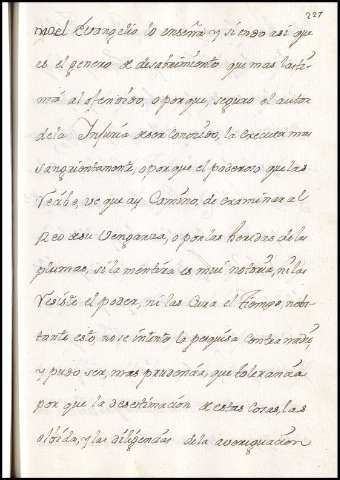 227
mo el Evangelio lo enseña y siendo asi que
es el genero de desabrimiento que mas lasti-
ma al ofendido, o porque, seguro el autor
de la Injuria de ser conocido, la executa mas
sangrientamente, o por que el poderoso que las
reçibe, ve que ay Camino, de examinar al
Reo de su Venganza, o por las heridas de las
plumas, si la mentira es mui notoria, ni las
resiste el poder, ni las Cura el Tiempo, nobs-
tante esto, no se intento la pesquisa contra nadie,
y pudo ser, mas prudencia, que tolerancia
por que la desestimacion de estas cosas, las
olbida, y las diligencias de la averiguacion